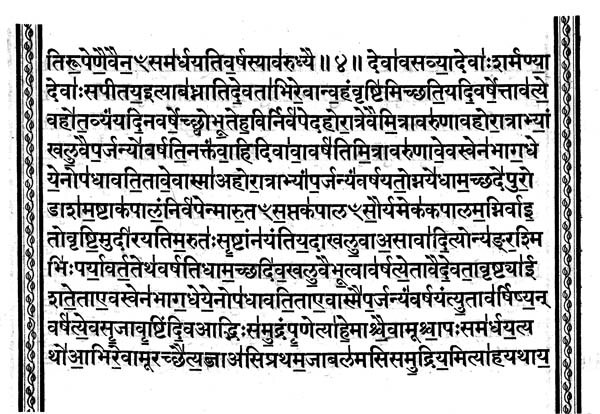 तिरू॒पेणै॒वैन॒ꣳसम॑र्धयतिव॒र्षस्याव॑रुध्यै॥४॥ देवा॑वसव्या॒देवाः॑शर्मण्या॒
देवाः॑सपीतय॒इत्याब॑ध्नातिदे॒वता॑भिरे॒वान्व॒हंवृष्टि॑मिच्छति॒यदि॒वर्षे॒त्ताव॑त्ये॒
वहो॑त॒व्यं॑यदि॒नवर्षे॒च्छ्वोभू॒तेह॒विर्निर्व॑पेदहोरा॒त्रेवैमि॒त्रावरु॑णावहोरा॒त्राभ्यां॒
खलु॒वैप॒र्जन्यो॑वर्षति॒नक्तं॑वा॒हिदिवा॑वा॒वर्ष॑तिमि॒त्रावरु॑णावे॒वस्वेन॑भाग॒धे
ये॒नोप॑धावति॒तावे॒वास्मा॑अहोरा॒त्राभ्यां॑प॒र्जन्यं॑वर्षयतो॒ग्नये॑धाम॒च्छदे॑पुरो॒
डाश॑म॒ष्टाक॑पालं॒निर्व॑पेन्मारु॒तꣳस॒प्तक॑पालꣳसौ॒र्यमेक॑कपालम॒ग्निर्वाइ॒
तोवृष्टि॒मुदी॑रयतिम॒रुतः॑सृ॒ष्टांन॑यंतिय॒दाखलु॒वाअ॒सावा॑दि॒त्योन्य॑ङ्र॒श्मि
भिः॑पर्या॒वर्त॒तेथ॑वर्षतिधाम॒च्छदि॑व॒खलु॒वैभू॒त्वाव॑र्षत्ये॒तावैदे॒वता॒वृष्ट्या॑ई
शते॒ताए॒वस्वेन॑भाग॒धेये॒नोप॑धावति॒ताए॒वास्मै॑प॒र्जन्यं॑वर्षयंत्यु॒ताव॑र्षिष्य॒न्
वर्ष॑त्ये॒वसृ॒जावृ॒ष्टिंदि॒वआद्भिःस॑मु॒द्रंपृ॒णेत्या॑हे॒माश्चै॒वामूश्चा॒पःसम॑र्धय॒त्य
थो॑आ॒भिरे॒वामूरच्छै॑त्य॒ब्जाअ॑सिप्रथम॒जाबल॑मसिसमु॒द्रिय॒मित्या॑हयथाय॒